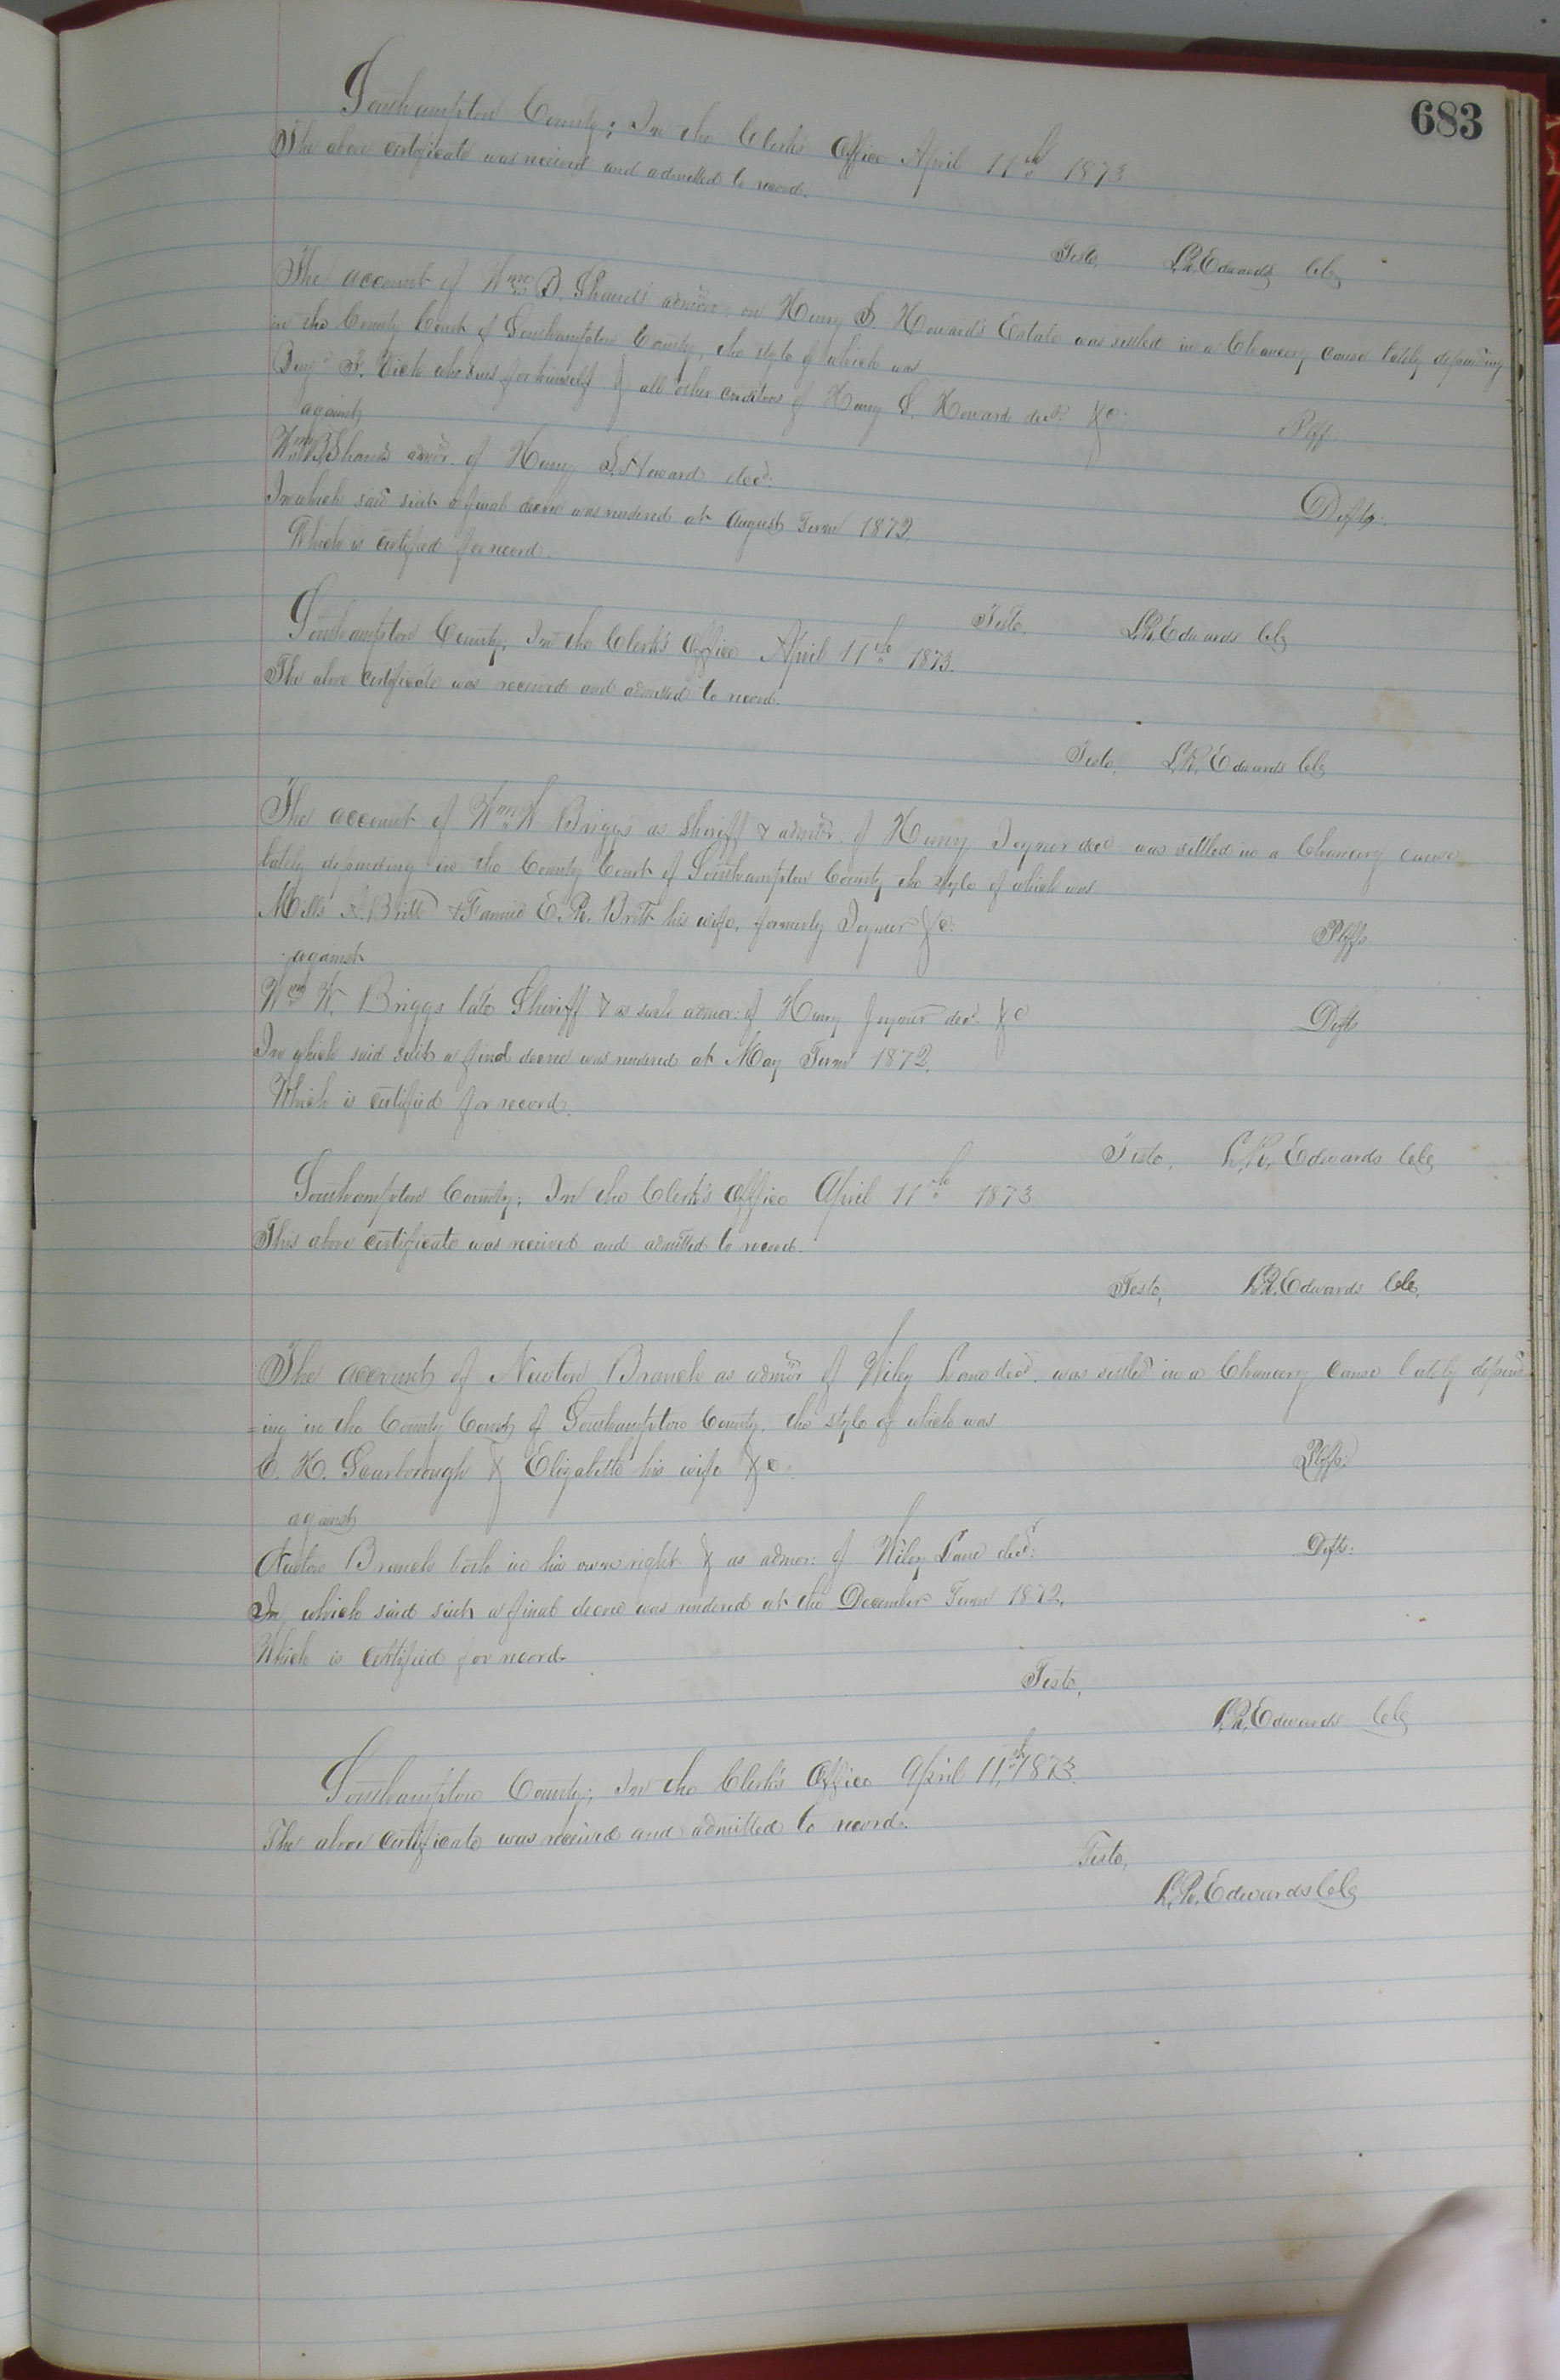 683
Southampton County; In the Clerk's Office April 11th 1873
The above certificate was received and admitted to record.
Teste, L.R. Edwards Clk
The account of Wm B. Shands admor on Henry S. Howard's Estate was settled in a Chancery cause lately depending
in the County Court of Southampton County, the style of which was
Benj. F. Vick who sues for himself & all other creditors of Henry S. Howard decd. &c. Plff
against
Wm B. Shands admor. of Henry S. Howard decd. Defts.
In which said suit a final decree was rendered at August Term 1872.
Which is certified for record.
Teste, L.R. Edwards Clk
Southampton County; In the Clerk's Office April 11th 1873.
The above certificate was received and admitted to record.
Teste, L.R. Edwards Clk
The account of Wm W Briggs as Sheriff & admor. of Henry Joyner decd was settled in a Chancery cause
lately depending in the County Court of Southampton County the style of which was
Mills Britt & Fannie E. R. Britt his wife, formerly Joyner &c. Plffs
against
Wm W. Briggs late Sheriff & as such admor: of Henry Joyner decd. &c Defts
In which said suit a final decree was rendered at May Term 1872.
Which is certified for record.
Teste, L.R. Edwards Clk
Southampton County; In the Clerk's Office April 11th 1873
This above certificate was received and admitted to record.
Teste, L.R. Edwards Clk.
The account of Newton Branch as admor of Wiley Lane decd. was settled in a Chancery cause lately depend
=ing in the County Court of Southampton County, the style of which was
E. H. Scarborough & Elizabeth his wife &c. Plffs:
against
Newton Branch both in his own right & as admor: of Wiley Lane decd: Defts:
In which said suit a final decree was rendered at the December Term 1872.
Which is certified for record.
Teste,
L.R. Edwards Clk
Southampton County; In the Clerk's Office April 11th, 1873.
The above certificate was received and admitted to record.
Teste,
L.R. Edwards Clk